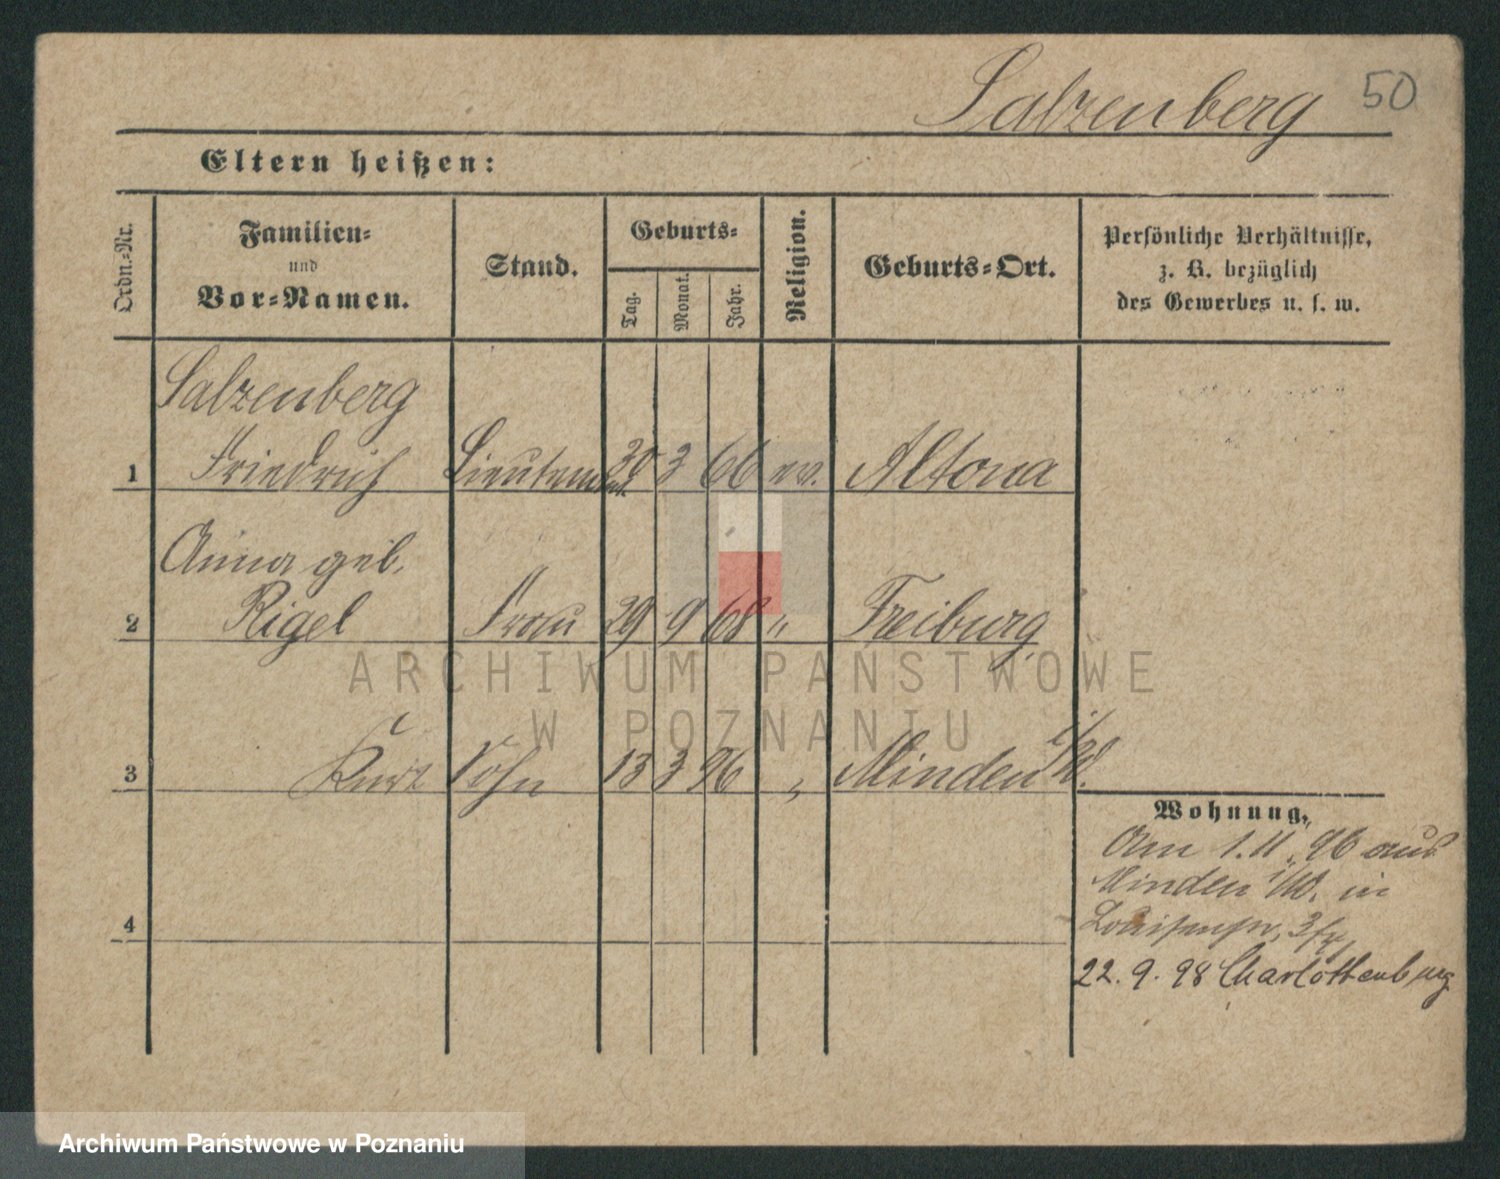 Salzenberg 50
Eltern heißen:
Ordn.-Nr.
Familien-
und
Vor-Namen.
Stand.
Geburts-
Tag.
Monat.
Jahr.
Religion.
Geburts-Ort.
Persönliche Verhältnisse,
z. B. bezüglich
des Gewerbes u. s. w.
Salzenberg
1 Friedrich Lieutenant 30 3 66 ev. Altona
Anna geb.
2 Rigel Frau 29 9 68 " Freiburg
3 Kurt Sohn 13 3 96 " Minden i/W.
Wohnung.
Am 1.11.96 aus
Minden i/W. in
Louisenstr. 3
4
22.9.98 Charlottenburg
ARCHIWUM PAŃSTWOWE
W POZNANIU
Archiwum Państwowe w Poznaniu